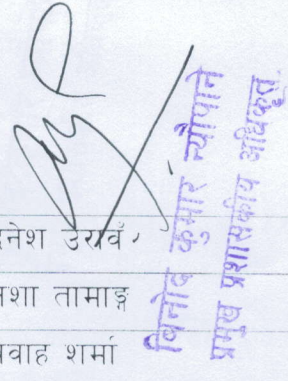 विनोद कुमार न्यौपाने
प्रमुख प्रशासकीय अधिकृत
नेश उराव
शा तामाङ्ग
वाह शर्मा